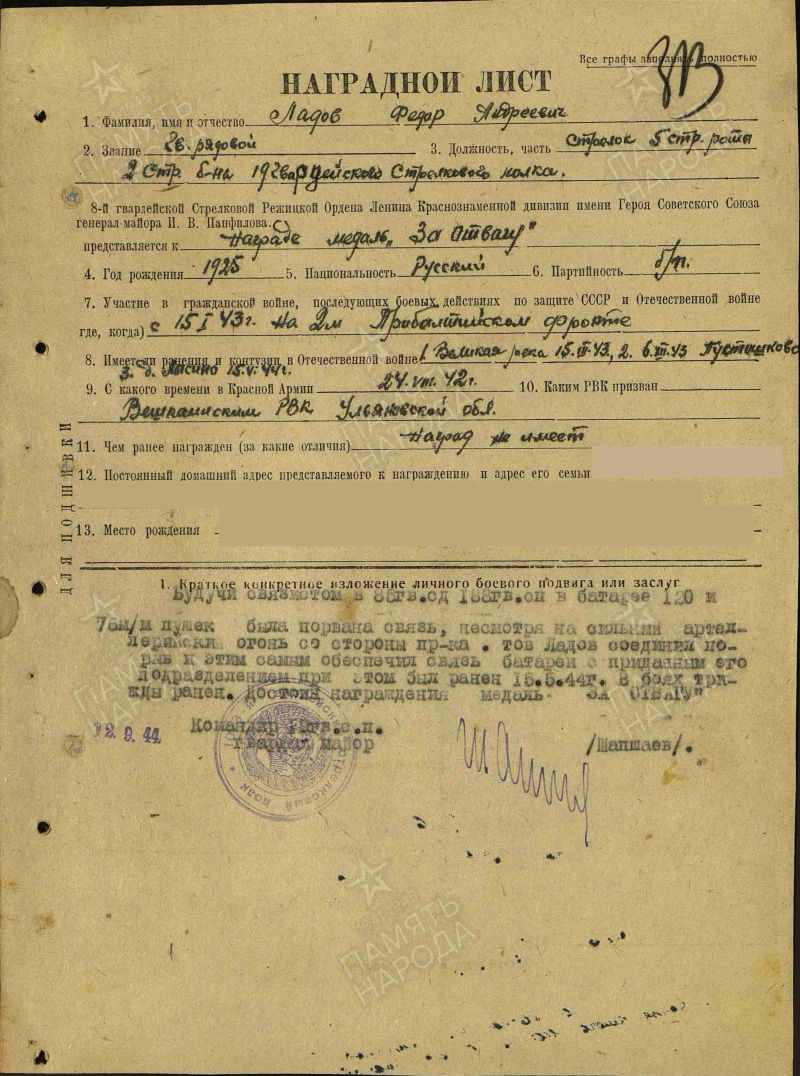 Все графы заполнять полностью
НАГРАДНОЙ ЛИСТ
1. Фамилия, имя и отчество Ладов Федор Андреевич
2. Звание Гв. рядовой 3. Должность, часть Стрелок 5 стр. роты
2 Стр б-на 19 Гвардейского Стрелкового полка.
8-й гвардейской Стрелковой Режицкой Ордена Ленина Краснознаменной дивизии имени Героя Советского Союза
генерал-майора И. В. Панфилова.
представляется к Награде медаль „За Отвагу"
4. Год рождения 1925 5. Национальность Русский 6. Партийность б/п.
7. Участие в гражданской войне, последующих боевых действиях по защите СССР и Отечественной войне
где, когда) с 15 I 43г. на 2м Прибалтийском фронте
8. Имеет ли ранения и контузии в Отечественной войне 1. Великая река 15.III.43, 2. 6.III.43 Пустошково
3. д. 15.V.44г.
9. С какого времени в Красной Армии 24.VIII.42г. 10. Каким РВК призван
Вешкаимским РВК Ульяновской обл.
11. Чем ранее награжден (за какие отличия) Наград не имеет
12. Постоянный домашний адрес представляемого к награждению и адрес его семьи
13. Место рождения -
ДЛЯ ПОДШИВКИ
1. Краткое конкретное изложение личного боевого подвига или заслуг
Будучи связистом в гв.сд гв.сп в батарее 120 и
76м/м пушек была порвана связь, несмотря на сильный артил-
лерийский огонь со стороны пр-ка . тов Ладов соединил по-
рыв и этим самым обеспечил связь батареи с приданным его
подразделением при этом был ранен 15.5.44г. В боях три-
жды ранен. Достоин награждения медаль- ЗА ОТВАГУ"
Командир 19гв.с.п.
гвардии майор /Шапшаев/.
12.9.44
ПАМЯТЬ
НАРОДА